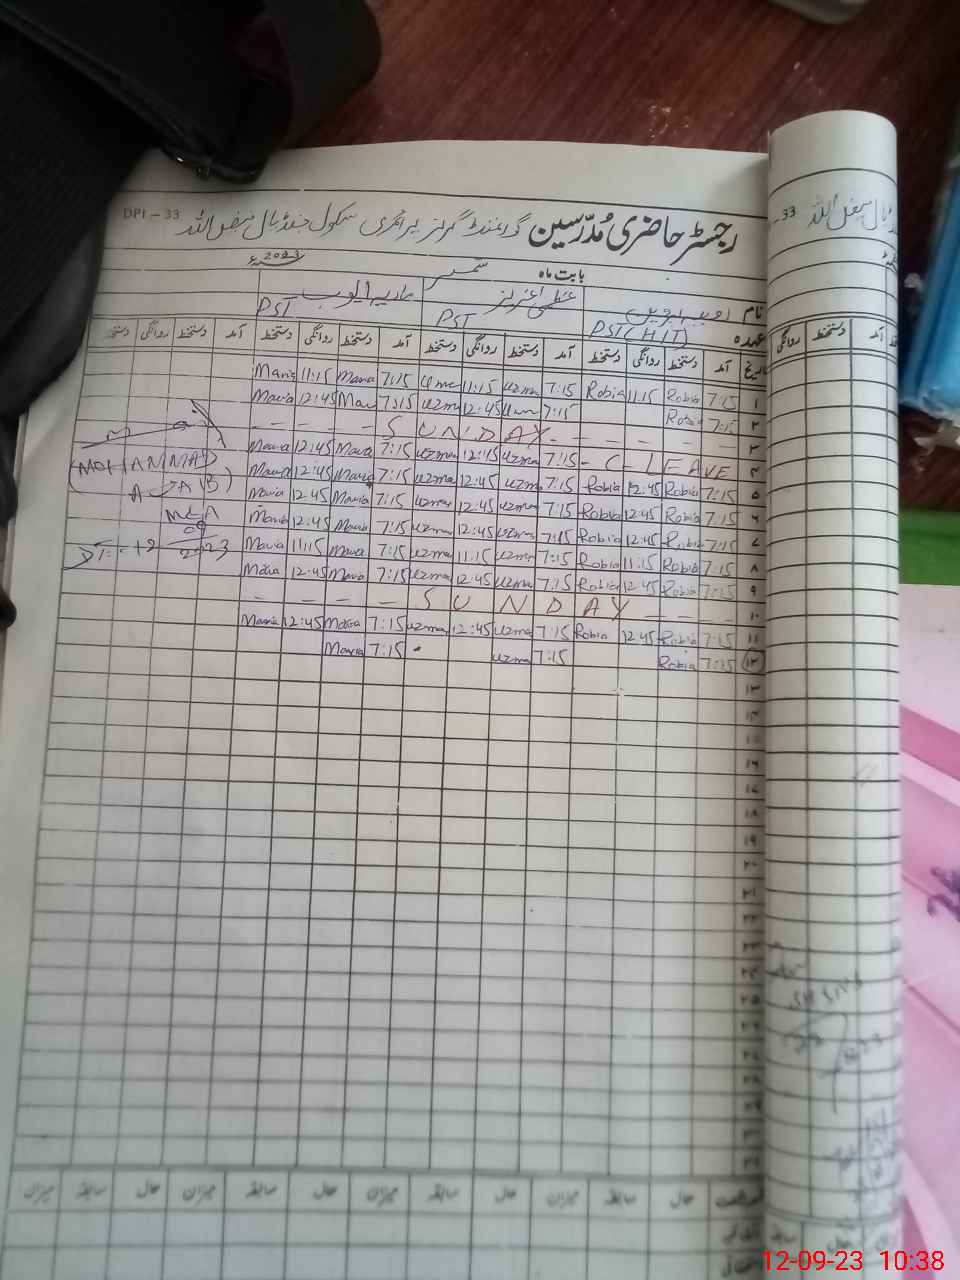 DPI - 33
رجسٹر حاضری مُدرّسین گورنمنٹ گرلز پرائمری سکول
بابت ماہ ستمبر 2023ء
نام روبینہ پروین عظمیٰ عزیز ماریہ ایوب
عہدہ PST(HT) PST PST
تاریخ آمد دستخط روانگی دستخط آمد دستخط روانگی دستخط آمد دستخط روانگی دستخط آمد دستخط روانگی دستخط
۱ 7:15 Robia 11:15 Robia 7:15 uzma 11:15 7:15 Maria 11:15 Maria
۲ 7:15 Robia 7:15 12:45 uzma 7:15 Mar 12:45 Maria
۳ - - - - S U N D A Y - - - - -
۴ - C - LEAVE 7:15 uzma 12:45 uzma 7:15 Maria 12:45 Maria
۵ 7:15 Robia 12:45 Robia 7:15 uzma 12:45 uzma 7:15 Maria 12:45 Maria
۶ 7:15 Robia 12:45 Robia 7:15 uzma 12:45 uzma 7:15 Maria 12:45 Maria
۷ 7:15 Robia 12:45 Robia 7:15 uzma 12:45 uzma 7:15 Maria 12:45 Maria
۸ 7:15 Robia 11:15 Robia 7:15 uzma 11:15 uzma 7:15 Maria 11:15 Maria
۹ 7:15 Robia 12:45 Robia 7:15 uzma 12:45 uzma 7:15 Maria 12:45 Maria
۱۰ - - - - S U N D A Y - - -
۱۱ 7:15 Robia 12:45 Robia 7:15 uzma 12:45 uzma 7:15 Maria 12:45 Maria
۱۲ 7:15 Robia 7:15 uzma 7:15 Maria
(MOHAMMAD
AJAB)
MEA
09
2023
۱۳
۱۴
۱۵
۱۶
۱۷
۱۸
۱۹
۲۰
۲۱
۲۲
۲۳
۲۴
۲۵
حال سابقہ میزان حال سابقہ میزان حال سابقہ میزان حال سابقہ میزان
33
آمد دستخط روانگی
12-09-23 10:38